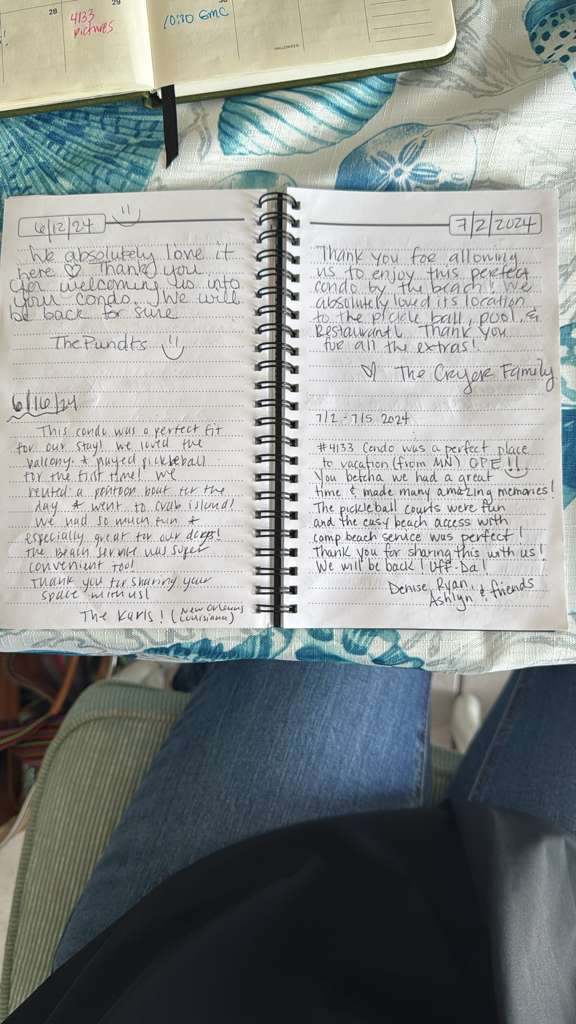 28
29
4133
pictures
10:30 GMC
HALLOWEEN
6/12/24
We absolutely love it
here ♡ Thank you
for welcoming us into
your condo. We will
be back for sure
The Pundts
6/16/24
This condo was a perfect fit
for our stay! we loved the
balcony & played pickleball
for the first time! We
rented a pontoon boat for the
day & went to crab island!
We had so much fun &
especially great for our dogs!
the beach service was super
convenient too!
Thank you for sharing your
space with us!
The Karls! (New Orleans, Louisiana)
7/2/2024
Thank you for allowing
us to enjoy this perfect
condo by the beach! We
absolutely loved its location
to the pickle ball, pool, &
Restaurant. Thank you
for all the extras!
♡ The Cryer Family
7/2-7/5 2024
#4133 Condo was a perfect place
to vacation (from MN) OPE!
You betcha we had a great
time & made many amazing memories!
The pickleball courts were fun
and the easy beach access with
comp beach service was perfect!
Thank you for sharing this with us!
We will be back! Uff-Da!
Denise, Ryan,
Ashlyn & friends